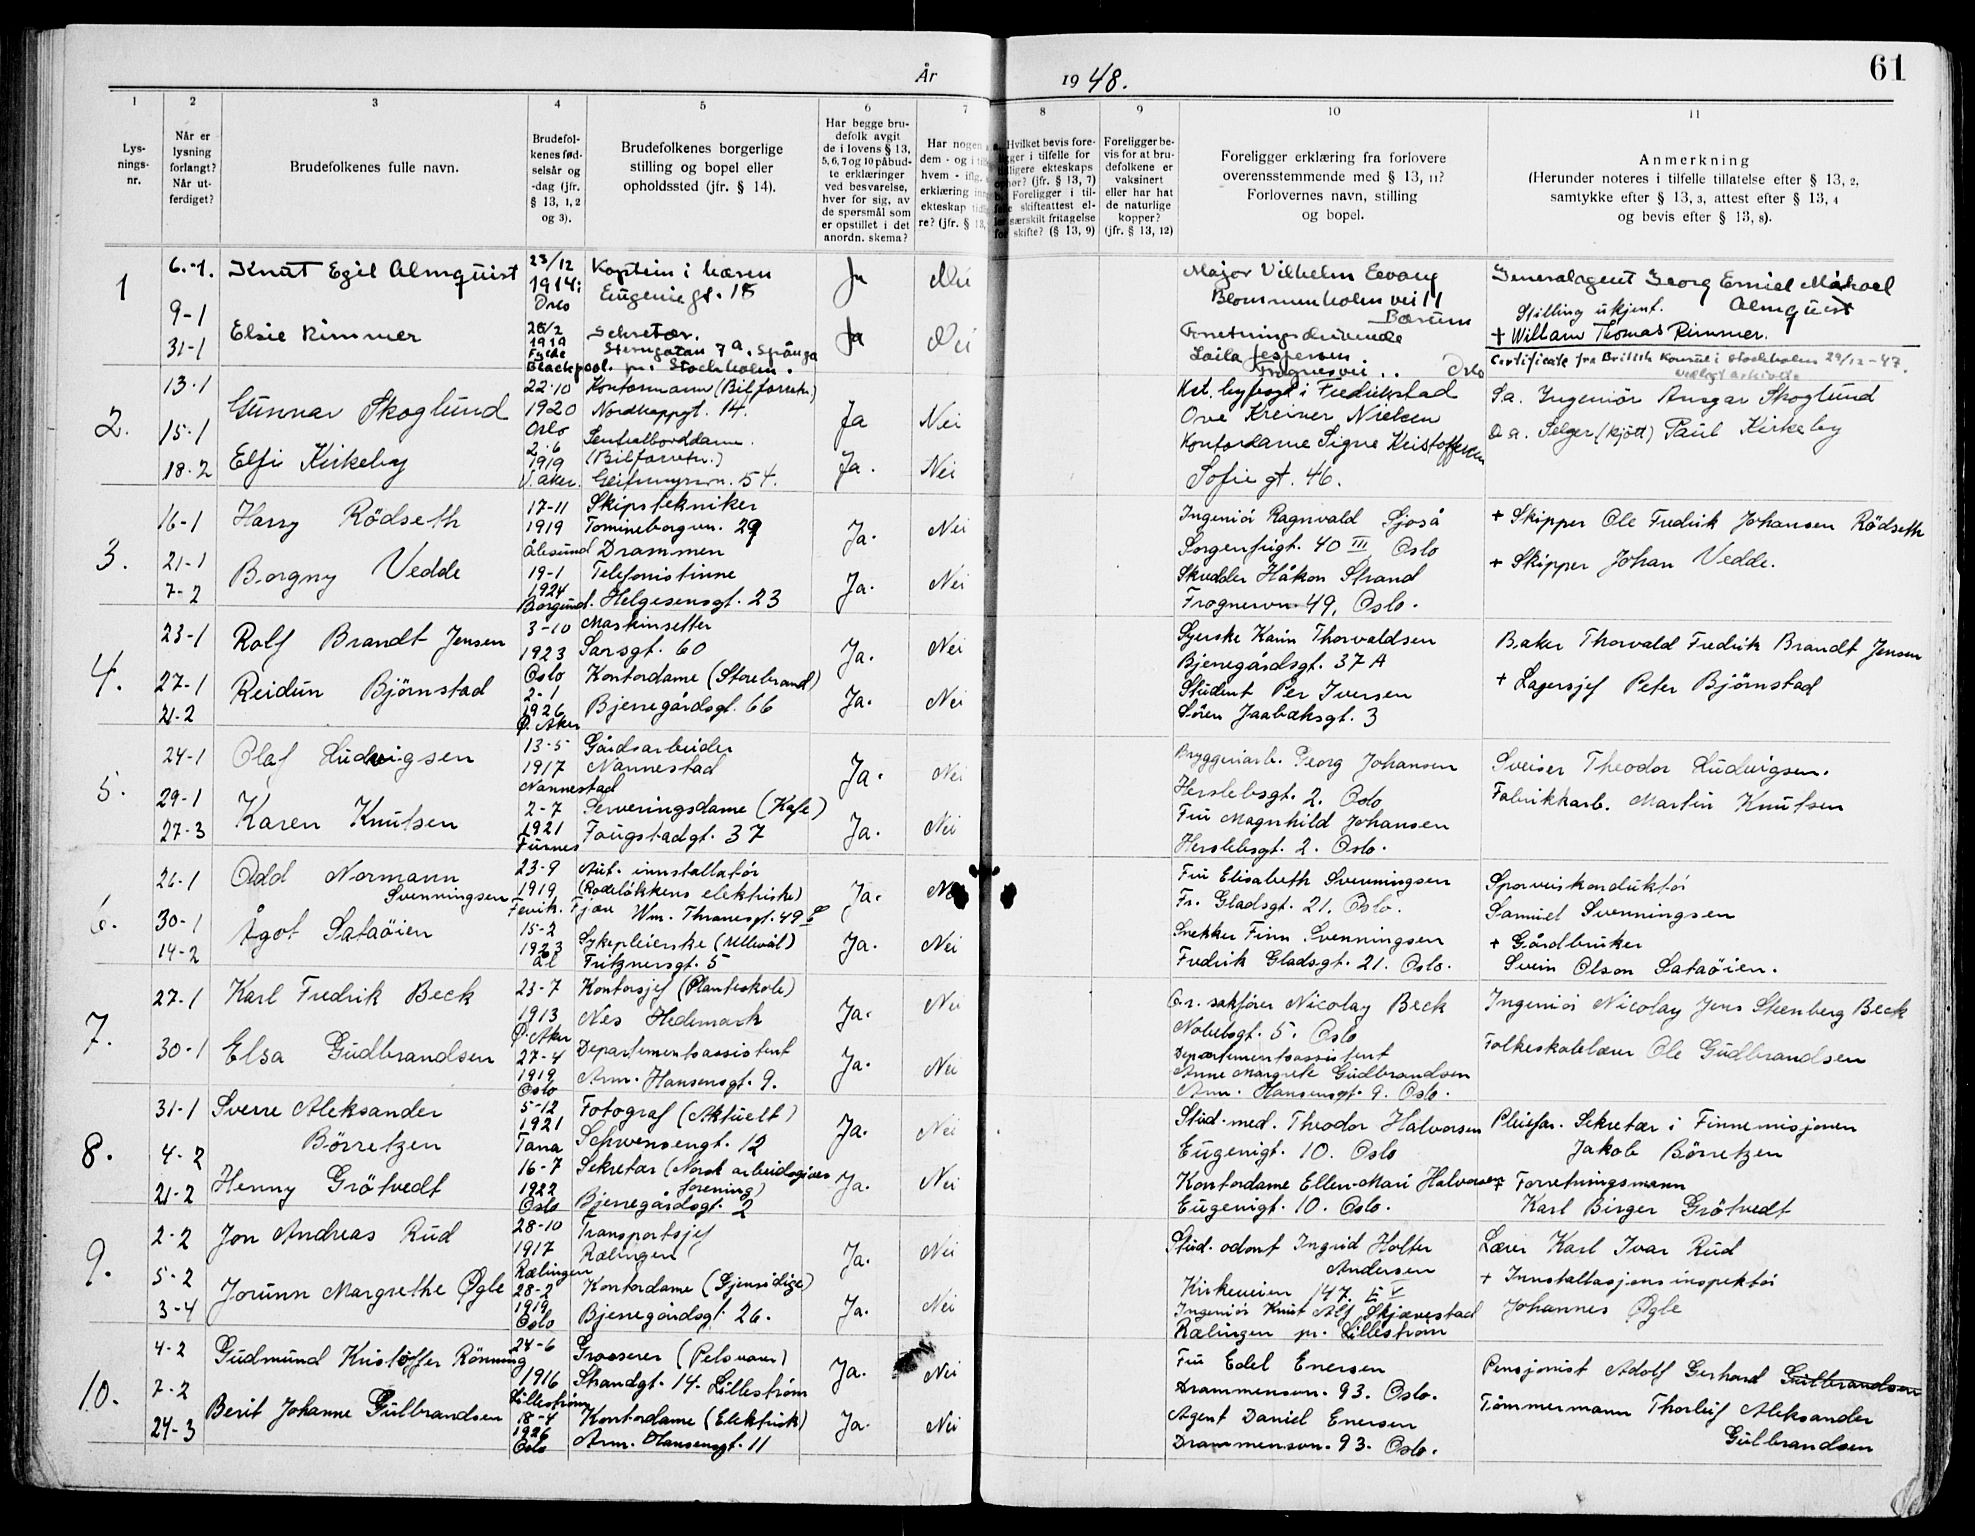 År 1948.
61
1 2 3 4 5 6 7 8 9 10 11
Lys-
nings-
nr.
Når er
lysning
forlangt?
Når ut-
ferdiget?
Brudefolkenes fulle navn.
Brudefol-
kenes fød-
selsår og
-dag (jfr.
§ 13, 1, 2
og 3).
Brudefolkenes borgerlige
stilling og bopel eller
opholdssted (jfr. § 14).
Har begge bru-
defolk avgit
de i lovens § 13,
5, 6, 7 og 10 påbud-
te erklæringer
ved besvarelse,
hver for sig, av
de spørsmål som
er opstillet i det
anordn. skema?
Har nogen a
dem - og i
hvem -
erklæring
ekteskap
re? (jfr. § 13,
Hvilket bevis fore-
ligger i tilfelle for
tidligere ekteskaps
ophør? (jfr. § 13, 7)
Foreligger i til-
felle skifteattest el-
særskilt fritagelse
for skifte? (§ 13, 9)
Foreligger be-
vis for at bru-
defolkene er
vaksinert
eller har hat
de naturlige
kopper?
(jfr. § 13, 12)
Foreligger erklæring fra forlovere
overensstemmende med § 13, 11?
Forlovernes navn, stilling
og bopel.
Anmerkning
(Herunder noteres i tilfelle tillatelse efter § 13, 2,
samtykke efter § 13, 3, attest efter § 13, 4
og bevis efter § 13, 8).
1
6.-1.
9-1
31-1
Knut Egil Almquist
Elsie Rimmer
23/12
1914:
Oslo
26/2
1919
Fylde
Blackpool.
Kaptein i hæren
Eugenie gt. 15
Sekretær.
Sterngatan 7a. Spånga
pr. Stockholm.
Ja
Ja
Nei
Nei
Major Vilhelm Evang
Blommenholmvei 11
Bærum
Forretningsdrivende
Laila Jespersen.
Frognervei .. Oslo
Generalagent Georg Emiel Mikael
Almquist
Stilling ukjent.
+ William Thomas Rimmer.
Certificate fra British Konsul i Stockholm 29/12-47.
2.
13.1
15.1
18.2
Gunnar Skoglund
Elfi Kirkeby
22.10
1920
Oslo
2.6
1919
V. aker.
Kontormann (Bilforretn.)
Nordkappgt. 14.
Sentralborddame.
(Bilforretn.)
Geitmyrsvn. 54.
Ja
Ja.
Nei
Nei
Kst. byfogd i Fredrikstad
Ove Kreiner Nielsen
Kontordame Signe Kristoffersen
Sofie gt. 46.
S.a. Ingeniör Ansgar Skoglund
D.a. Selger (kjött) Paul Kirkeby
3.
16-1
21-1
7-2
Harry Rödseth
Borgny Vedde
17-11
1919
Ålesund
19-1
1924
Borgund.
Skipstekniker
Tomineborgvn. 29
Drammen
Telefonistinne
Helgesensgt. 23
Ja.
Ja.
Nei
Nei
Ingeniör Ragnvald Sjoså
Sorgenfrigt. 40 III Oslo
Skredder Håkon Strand
Frognervn. 49, Oslo.
+ Skipper Ole Fredrik Johansen Rödseth
+ Skipper Johan Vedde.
4.
23-1
27-1
21-2
Rolf Brandt Jensen
Reidun Bjørnstad
3-10
1923
Oslo
2-1
1926
Ø. Aker
Maskinsetter
Sarsgt. 60
Kontordame (Storebrand)
Bjerregårdsgt. 66
Ja.
Ja.
Nei
Nei
Syerske Karin Thorvaldsen
Bjerregårdsgt. 37 A
Student Per Iversen
Sören Jaabæksgt. 3
Baker Thorvald Fredrik Brandt Jensen
+ Lagersjef Peter Bjørnstad
5.
24-1
29-1
27-3
Olaf Ludvigsen
Karen Knutsen
13-5
1917
Nannestad
2-7
1921
Furnes
Gårdsarbeider
Nannestad
Serveringsdame (Kafe)
Fougstadgt. 37
Ja.
Ja.
Nei
Nei
Bryggeriarb. Georg Johansen
Herslebsgt. 2. Oslo
Fru Magnhild Johansen
Herslebsgt. 2. Oslo.
Sveiser Theodor Ludvigsen.
Fabrikkarb. Martin Knutsen
6.
26-1
30-1
14-2
Odd Normann
Svenningsen
Ågot Sataöien
23-9
1919
Fevik. Fjære
15-2
1923
Ål
Aut. innstallatör
(Rodeløkkens elektriske)
Wm. Thranesgt. 49
Sykepleierske (Ullevål)
Fritznersgt. 5
Ja.
Ja.
Nei
Nei
Fru Elisabeth Svenningsen
Fr. Gladsgt. 21. Oslo.
Snekker Finn Svenningsen
Fredrik Gladsgt. 21. Oslo.
Sporveiskonduktör
Samuel Svenningsen
+ Gårdbruker
Svein Olson Sataöien.
7.
27-1
30-1
Karl Fredrik Beck
Elsa Gudbrandsen
23-7
1913
Ø. Aker
27-4
1919
Oslo
Kontorsjef (Planteskole)
Nes Hedemark
Departementsassistent
Arm. Hansensgt. 9.
Ja.
Ja.
Nei
Nei
O.r. sakfører Nicolay Beck
Nobelsgt. 5. Oslo
Departementsassistent
Anne Margrete Gudbrandsen
Arm. Hansensgt. 9. Oslo.
Ingeniör Nicolay Jens Steenberg Beck
Folkeskolelærer Ole Gudbrandsen
8.
31-1
4-2
21-2
Sverre Aleksander
Börretzen
Henny Grötvedt
5-12
1921
Tana
16-7
1922
Oslo
Fotograf (Aktuelt)
Schwensengt. 12
Sekretær (Norsk arbeidsgiver
forening)
Bjerregårdsgt. 2
Ja.
Ja.
Nei
Nei
Stud. med. Theodor Halvorsen
Eugenigt. 10. Oslo
Kontordame Ellen-Mari Halvorsen
Eugenigt. 10. Oslo.
Pleiefar. Sekretær i Finnemisjonen
Jakob Börretzen
+ Forretningsmann
Karl Birger Grötvedt
9.
2-2
5-2
3-4
Jon Andreas Rud
Jorunn Margrethe Øgle
28-10
1917
Rælingen
28-2
1919
Oslo
Transportsjef
Rælingen
Kontordame (Gjensidige)
Bjerregårdsgt. 26.
Ja.
Ja.
Nei
Nei
Stud. odont Ingrid Holter
Andersen
Kirkeveien 147. V
Ingeniör Knut Alf Skjævestad
Rælingen pr. Lilleström
Lærer Karl Ivar Rud
+ Innstallasjonsinspektör
Johannes Øgle
10.
4-2
7-2
24-3
Gudmund Kristoffer Rönning
Berit Johanne Gulbrandsen
24-6
1916
Lilleström
18-4
1926
Oslo
Grosserer (Pelsvarer)
Strandgt. 14. Lilleström
Kontordame (Elektrisk)
Arm. Hansensgt. 11
Ja.
Ja.
Nei
Nei
Fru Edel Enersen
Drammensvn. 93. Oslo.
Agent Daniel Enersen
Drammensvn. 93. Oslo.
Pensjonist Adolf Gerhard Gulbrandsen
Tömmermann Thorleif Aleksander
Gulbrandsen